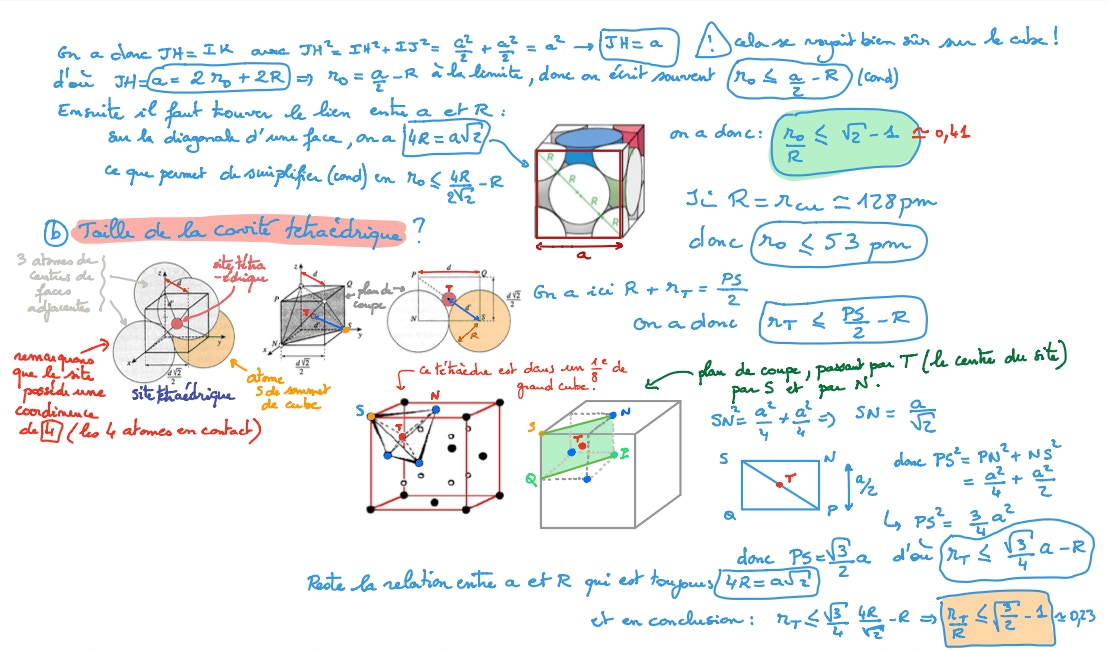 On a donc JH = IK avec JH² = IH² + IJ² = a²/2 + a²/2 = a² → JH = a ! cela se voyait bien sûr sur le cube !
d'où JH = a = 2 r₀ + 2R ⇒ r₀ = a/2 - R à la limite, donc on écrit souvent r₀ ≤ a/2 - R (cond)
Ensuite il faut trouver le lien entre a et R :
sur la diagonale d'une face, on a 4R = a√2
ce que permet de simplifier (cond) en r₀ ≤ 4R/2√2 - R
R
R
R
R
a
on a donc : r₀/R ≤ √2 - 1 ≃ 0,41
Ici R = r_Cu ≃ 128 pm
donc r₀ ≤ 53 pm
b) Taille de la cavité tétraédrique ?
3 atomes de centres de faces adjacentes
site tétraédrique
remarquons que le site possède une coordinence de 4 (les 4 atomes en contact)
site tétraédrique
atome S de sommet de cube
plan de coupe
P d Q
T
N S
R
d√2/2
d√2/2
d√2/2
On a ici R + r_T = PS/2
on a donc r_T ≤ PS/2 - R
ce tétraèdre est dans un 1/8 e de grand cube !
S N
T
plan de coupe, passant par T (le centre du site)
par S et par N.
S N
T
Q P
SN² = a²/4 + a²/4 ⇒ SN = a/√2
S N
T
Q P
a/2
donc PS² = PN² + NS²
= a²/4 + a²/2
↳ PS² = 3/4 a²
donc PS = √3/2 a d'où r_T ≤ √3/4 a - R
Reste la relation entre a et R qui est toujours 4R = a√2
et en conclusion : r_T ≤ √3/4 4R/√2 - R ⇒ r_T/R ≤ √(3/2) - 1 ≃ 0,23